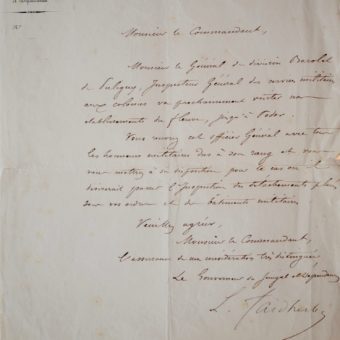 Monsieur le Commandant,
Monsieur le Général de division Barolet
de Puligny, Inspecteur Général des services militaires
aux colonies va prochainement visiter nos
établissements du fleuve, jusqu'à Podor.
Vous rendrez à cet officier Général avec tous
les honneurs militaires dus à son rang et vous
vous mettrez à sa disposition pour le cas où il
désirerait passer l'inspection des détachements placés
sous vos ordres et des bâtiments militaires
Veuillez agréer,
Monsieur le Commandant,
l'assurance de ma considération très distinguée
Le Gouverneur du Sénégal et Dépendances
L. Faidherbe